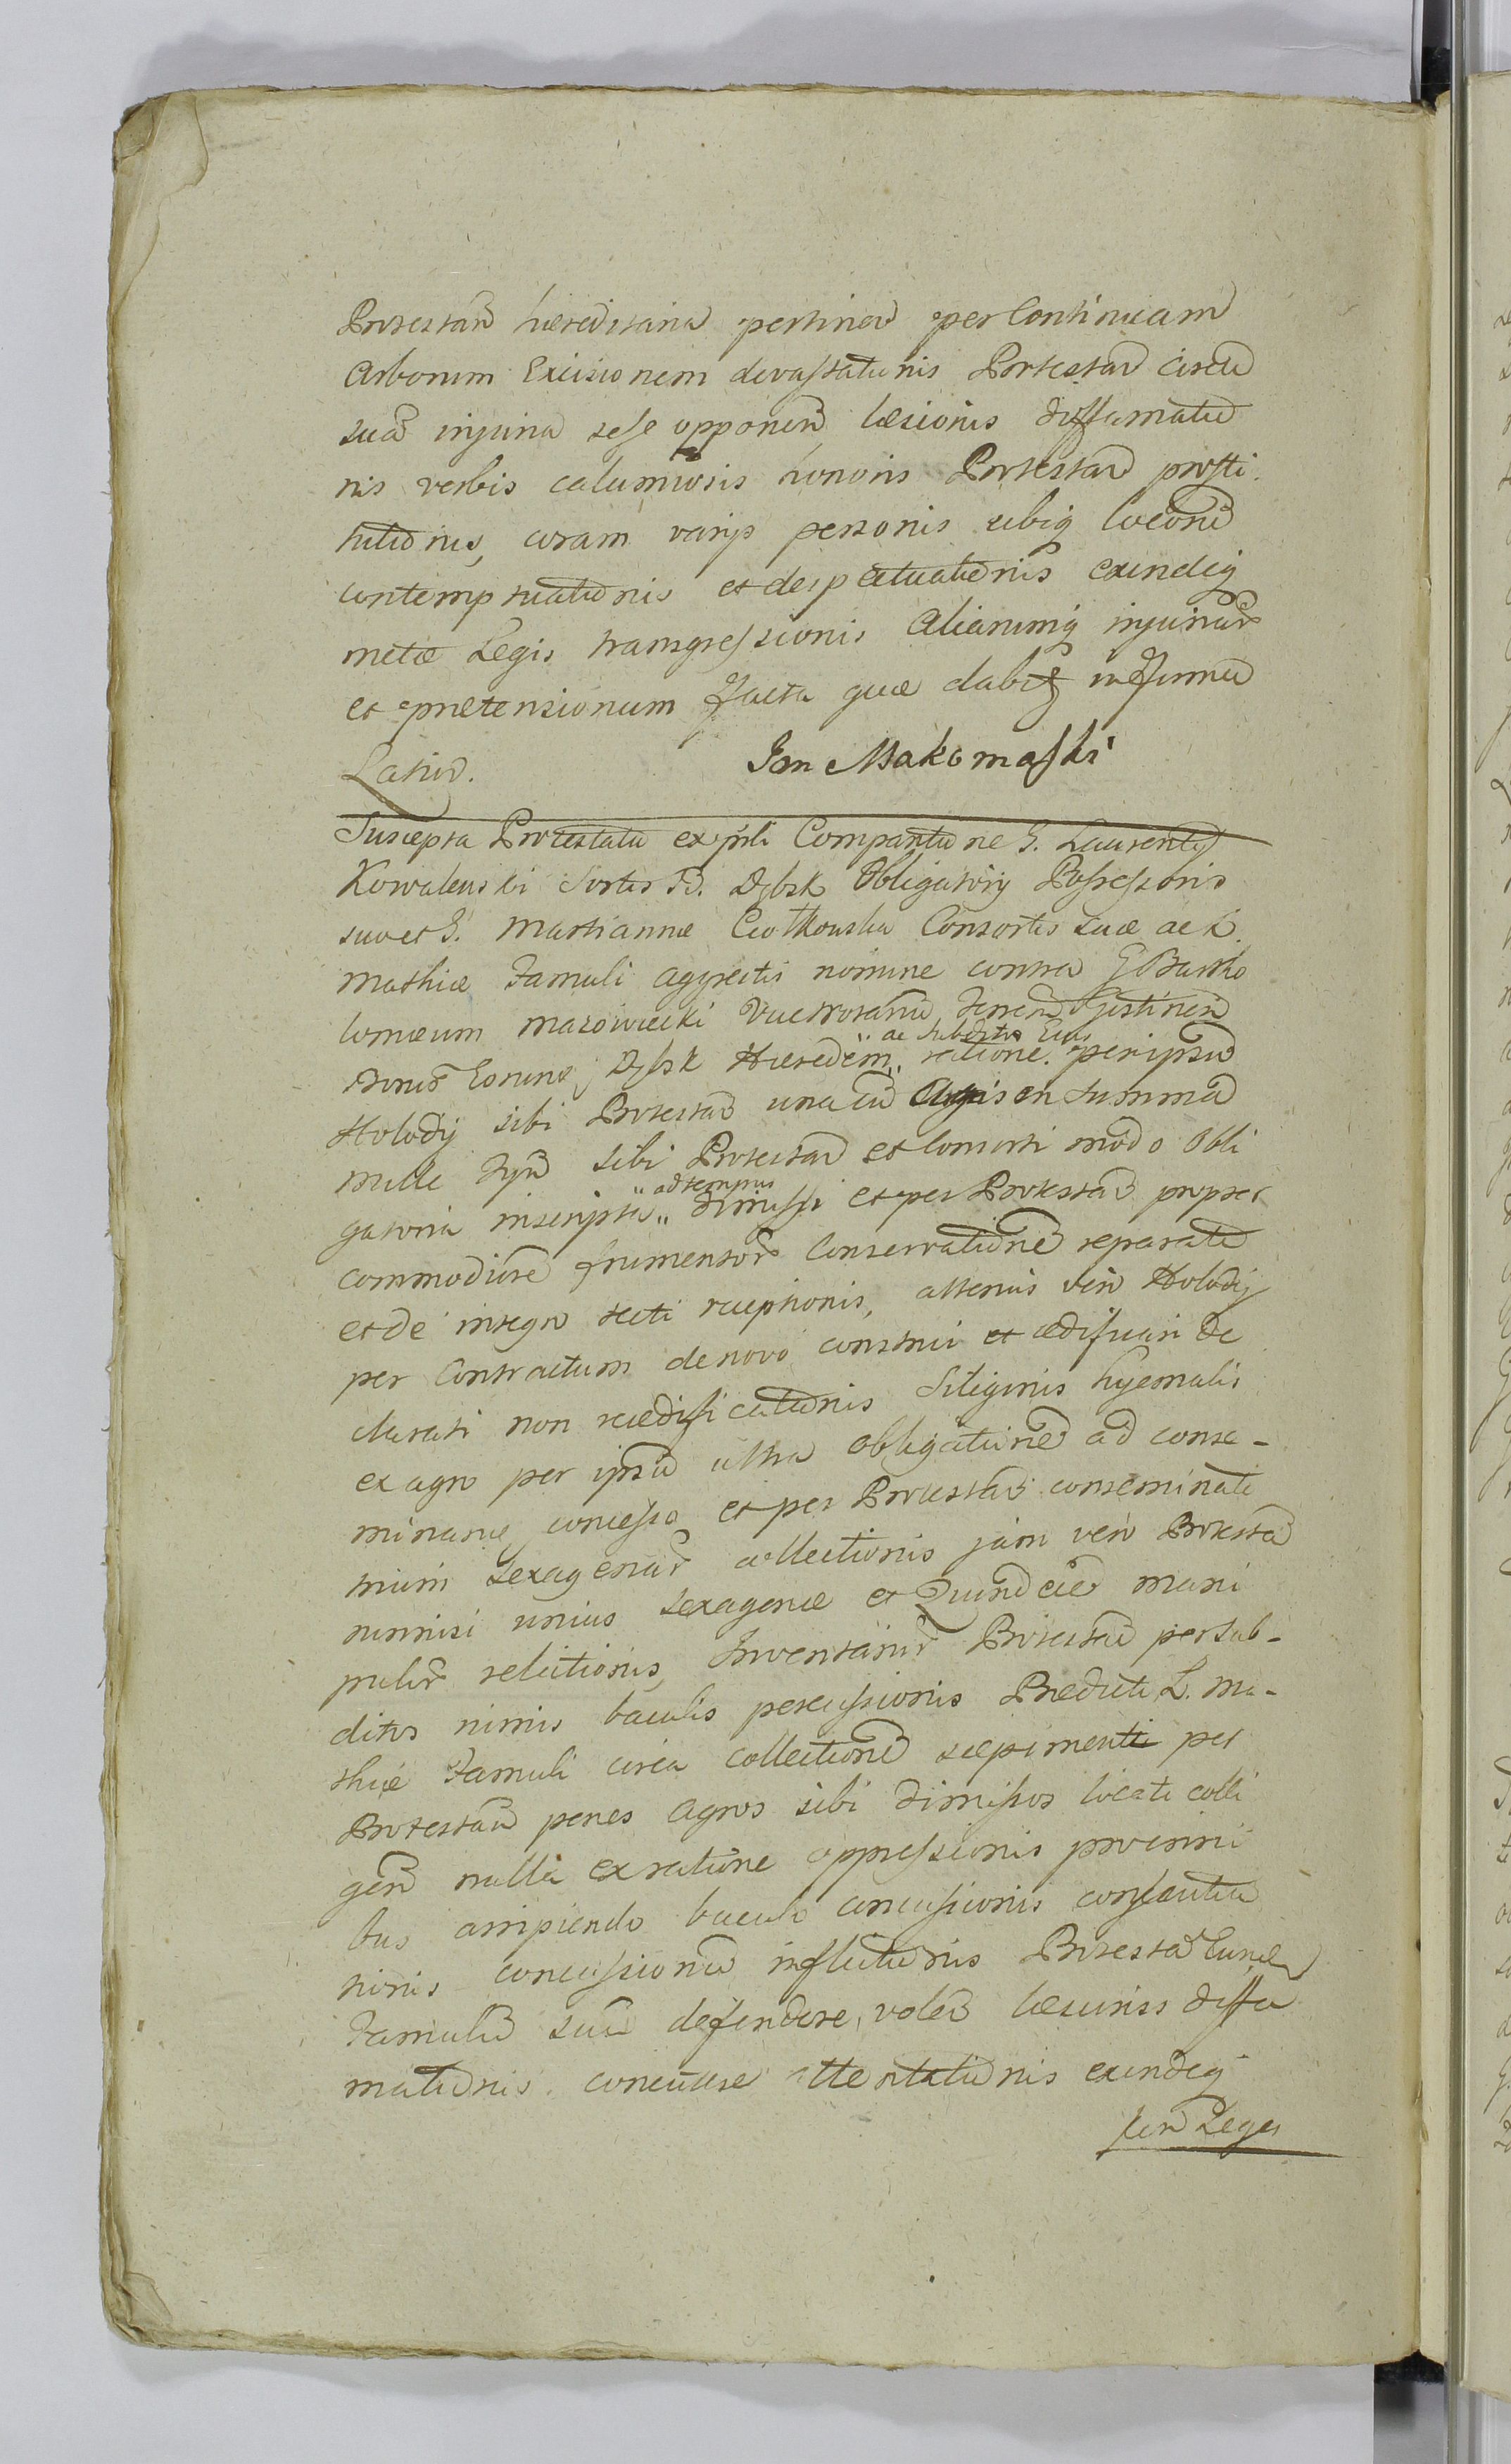 Protestan hæreditaria pertinen per Continuam
Arborum Excisionem devastationis Protestan circa
sua injuria sese opponen læsionis diffamatio
nis verbis calumniosis honoris Protestan prosti
tutionis, coram varijs personis ubiq locorum
contemptuationis et despectuationis exindeq
metæ Legis transgressionis Aliarumq injuriar
et prætensionum Facta quæ dabitr in Forma
Latiori.
Jan Makomaski
Suscepta Protestatio ex prsti Comparitione G. Laurentij
Kowalewski Sortis Dybsk Obligatorij Possessoris
suo et G. Martiannæ Ciołkowska Consortis suæ ac L.
Mathiæ Famuli agrestis nomine contra G Bartho
lomæum Mazowiecki
Bonor Eorund Dybsk Hæredem " ac subditos Eius " ratione per ipsum
Holodij sibi Protestan una cum Agris in Summa
mille flp sibi Protestan et Consorti modo Obli
gatorio inscripta " ad tempus " dimissi et per Protestan propter
commodiorem frumentor Conservationem reparati
et de integro tecti receptionis, alterius vero Holodij
per Contractum de novo construi et ædificari de
clarati non reædificationis Siliginis hyemalis
ex agro per ipsum ultra obligationem ad conse-
minanæ concesso et per Protestan conseminati
trium sexagenar collectionis jam vero Protestan
nonnisi unius sexagenæ et Quindecim mani
pulor relictionis, Inventarior Protestan per sub-
ditos nimis baculis percussionis Prædicti L. Ma-
thiæ Famuli circa collectionem sæpimenti per
Protestan penes Agros sibi dimissos locati colli
gen nulla ex ratione oppressionis provenni
bus arripiendo baculo concussionis
tionis concussionum inflictionis Protestan Eund
Famulum suum defendere, volen læsionis diffa
mationis, concussæ attentationis exindeq
Legis